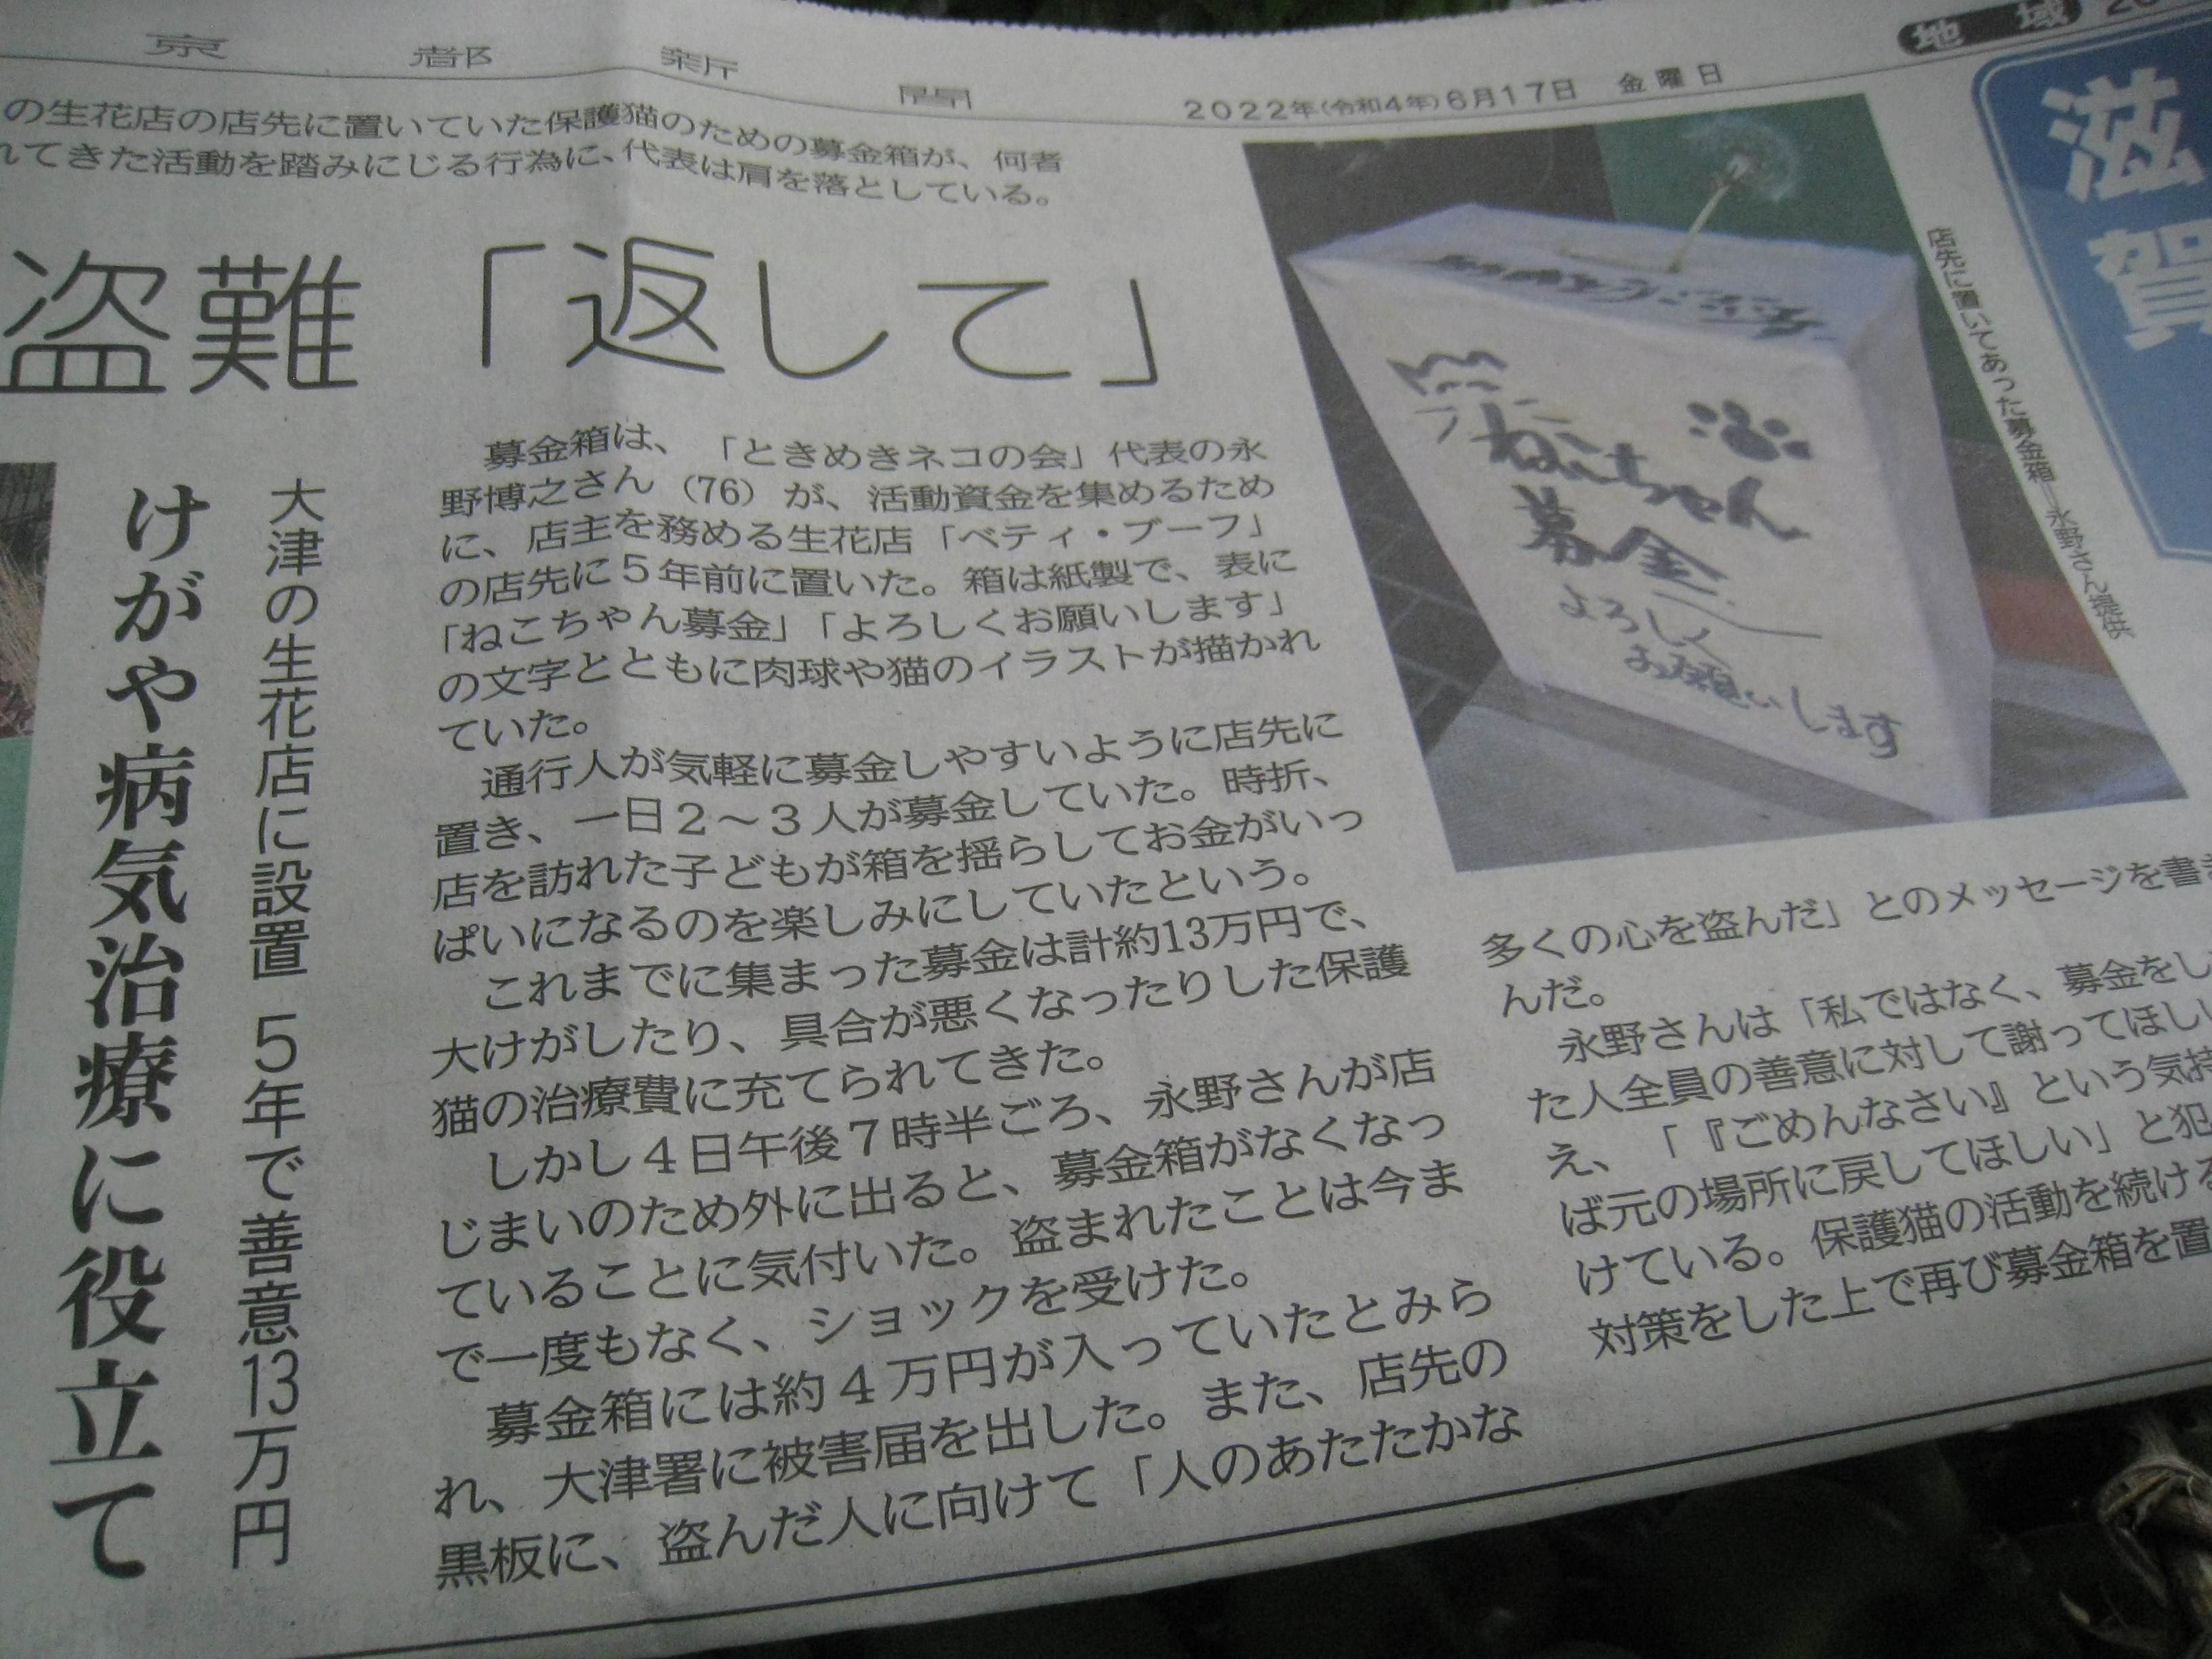 京都新聞
2022年(令和4年)6月17日 金曜日
地域
滋賀
の生花店の店先に置いていた保護猫のための募金箱が、何者
れてきた活動を踏みにじる行為に、代表は肩を落としている。
盗難「返して」
大津の生花店に設置 5年で善意13万円
けがや病気治療に役立て
募金箱は、「ときめきネコの会」代表の永
野博之さん(76)が、活動資金を集めるため
に、店主を務める生花店「ベティ・ブーフ」
の店先に5年前に置いた。箱は紙製で、表に
「ねこちゃん募金」「よろしくお願いします」
の文字とともに肉球や猫のイラストが描かれ
ていた。
通行人が気軽に募金しやすいように店先に
置き、一日2〜3人が募金していた。時折、
店を訪れた子どもが箱を揺らしてお金がいっ
ぱいになるのを楽しみにしていたという。
これまでに集まった募金は計約13万円で、
大けがしたり、具合が悪くなったりした保護
猫の治療費に充てられてきた。
しかし4日午後7時半ごろ、永野さんが店
じまいのため外に出ると、募金箱がなくなっ
ていることに気付いた。盗まれたことは今ま
で一度もなく、ショックを受けた。
募金箱には約4万円が入っていたとみら
れ、大津署に被害届を出した。また、店先の
黒板に、盗んだ人に向けて「人のあたたかな
多くの心を盗んだ」とのメッセージを書き
んだ。
永野さんは「私ではなく、募金をし
た人全員の善意に対して謝ってほしい
え、「『ごめんなさい』という気持
ば元の場所に戻してほしい」と犯
けている。保護猫の活動を続ける
対策をした上で再び募金箱を置
ねこちゃん
募金
よろしく
お願いします
店先に置いてあった募金箱=永野さん提供